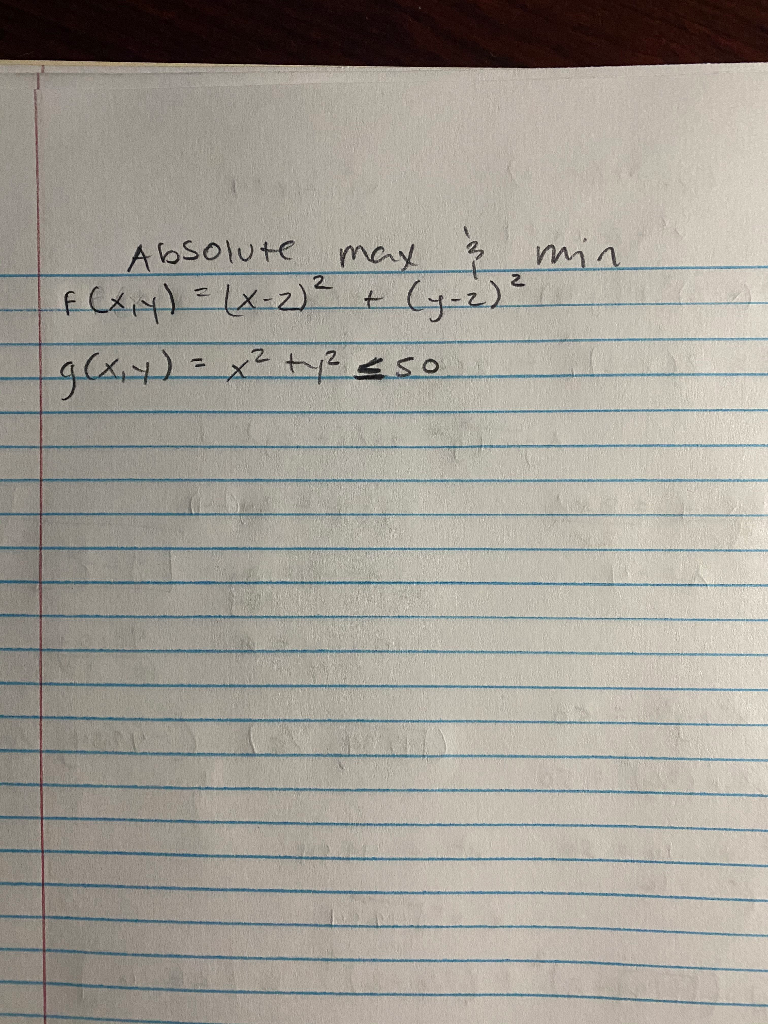 Absolute max & min
f(x,y) = (x-2)² + (y-2)²
g(x,y) = x² + y² ≤ 50